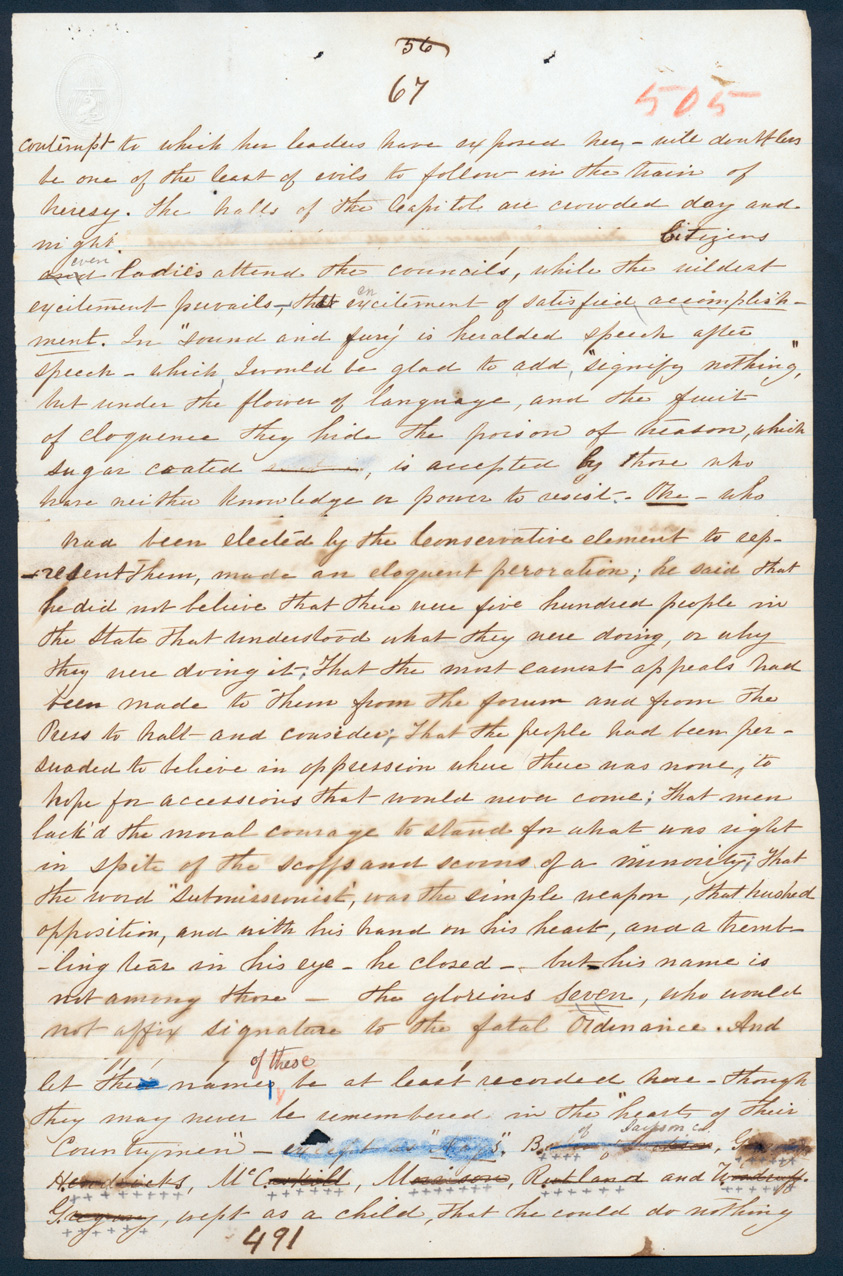 56
67
505
contempt to which her leaders have exposed her, - will doubtless
be one of the least of evils to follow in the train of
heresy. The halls of the Capitol are crowded day and
night. Citizens
even
and ladies attend the councils, while the wildest
an
excitement prevails, - that excitement of satisfied accomplish-
ment. In "sound and fury' is heralded speech after
speech - which I would be glad to add, "signify nothing",
but under the flower of language, and the fruit
of eloquence they hide the poison of treason, which
sugar coated , is accepted by those who
have neither knowledge or power to resist. - One - who
had been elected by the Conservative element to rep-
-resent them, made an eloquent peroration; he said that
he did not believe that there were five hundred people in
the State that understood what they were doing, or why
they were doing it; That the most earnest appeals had
been made to them from the forum and from the
Press to halt and consider; That the people had been per-
suaded to believe in oppression where there was none, to
hope for accessions that would never come; That men
lack'd the moral courage to stand for what was right
in spite of the scoffs and scorns of a minority; That
the word "submissionist", was the simple weapon, that hushed
opposition, and with his hand on his heart, and a tremb-
-ling tear in his eye - he closed - but his name is
not among those - the glorious seven, who would
not affix signature to the fatal Ordinance. And
of these
let the names be at least recorded here - though
they may never be remembered in the "hearts of their
of Dayson Co.
Countrymen" - except as "Traps". B
Hendricks, McCorkall, Morrison, Rutland and Woodruff.
Gregory, wept as a child, that he could do nothing
491